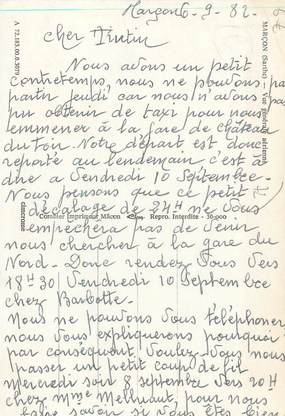 Marçon 6-9-82-
Cher Tintin
Nous avons un petit
contretemps, nous ne pouvons pas
partir jeudi car nous n'avons pas
pu obtenir de taxi pour nous
emmener à la gare de Château
du Loir. Notre départ est donc
reporté au lendemain c'est à
dire à Vendredi 10 Septembre-
Nous pensons que ce petit
décalage de 24H ne vous
empêchera pas de venir
nous chercher à la gare du
Nord- Donc rendez vous vers
18H30 Vendredi 10 Septembre
chez Barbotte-
Nous ne pouvons vous téléphoner
nous vous expliquerons pourquoi
par conséquent, voulez-vous nous
passer un petit coup de fil
Mercredi soir 8 septembre vers 20H
chez Mme Melhuaut, pour nous
faire savoir si vous êtes bien
A 72.183.00.8.3079
MARÇON (Sarthe) - Vue générale aérienne
Combier Imprimeur Mâcon
Repro. Interdite - 30-000